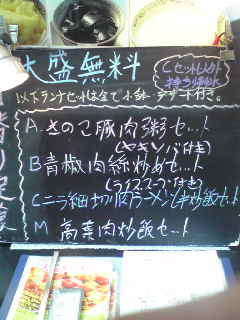 大盛無料
Cセット以外
持ち帰りOK
以下ランチセットは全て小鉢 デザート付き。
A.きのこ豚肉粥セット
(ヤキソバ付き)
B青椒肉絲炒めセット
(ライススープ付き)
Cニラ細切り肉ラーメンと半炒飯セット
M 高菜肉炒飯セット